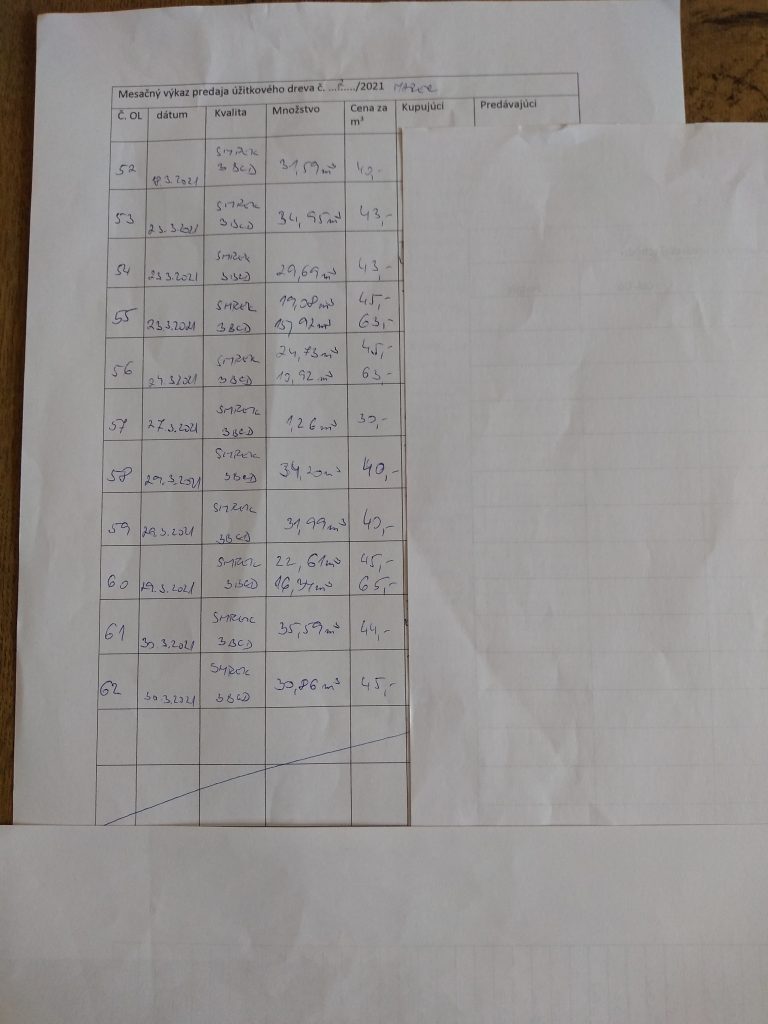 Mesačný výkaz predaja úžitkového dreva č. ......../2021 MAREC
Č. OL dátum Kvalita Množstvo Cena za m³ Kupujúci Predávajúci
SMREK
52 18.3.2021 3 BCD 31,59 m³ 40,-
SMREK
53 23.3.2021 3 BCD 34,95 m³ 43,-
SMREK
54 23.3.2021 3 BCD 29,69 m³ 43,-
SMREK 19,08 m³ 45,-
55 23.3.2021 3 BCD 13,92 m³ 63,-
SMREK 24,73 m³ 45,-
56 24.3.2021 3 BCD 13,92 m³ 63,-
SMREK
57 27.3.2021 3 BCD 1,26 m³ 30,-
SMREK
58 29.3.2021 3 BCD 34,20 m³ 40,-
SMREK
59 29.3.2021 3 BCD 31,99 m³ 40,-
SMREK 22,61 m³ 45,-
60 29.3.2021 3 BCD 16,34 m³ 65,-
SMREK
61 30.3.2021 3 BCD 35,59 m³ 44,-
SMREK
62 30.3.2021 3 BCD 30,86 m³ 45,-